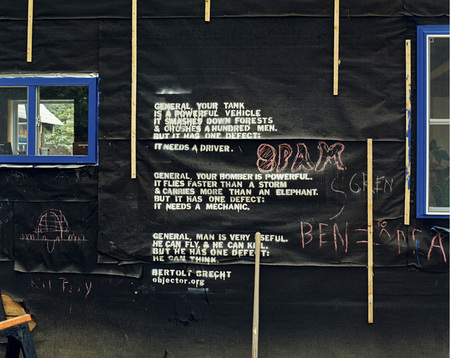 GENERAL, YOUR TANK
IS A POWERFUL VEHICLE
IT SMASHES DOWN FORESTS
& CRUSHES A HUNDRED MEN.
BUT IT HAS ONE DEFECT:
IT NEEDS A DRIVER.
SPAM
GENERAL, YOUR BOMBER IS POWERFUL.
IT FLIES FASTER THAN A STORM
& CARRIES MORE THAN AN ELEPHANT.
BUT IT HAS ONE DEFECT:
IT NEEDS A MECHANIC.
BEN =
GENERAL, MAN IS VERY USEFUL.
HE CAN FLY, & HE CAN KILL
BUT HE HAS ONE DEFECT:
HE CAN THINK.
BERTOLT BRECHT
objector.org